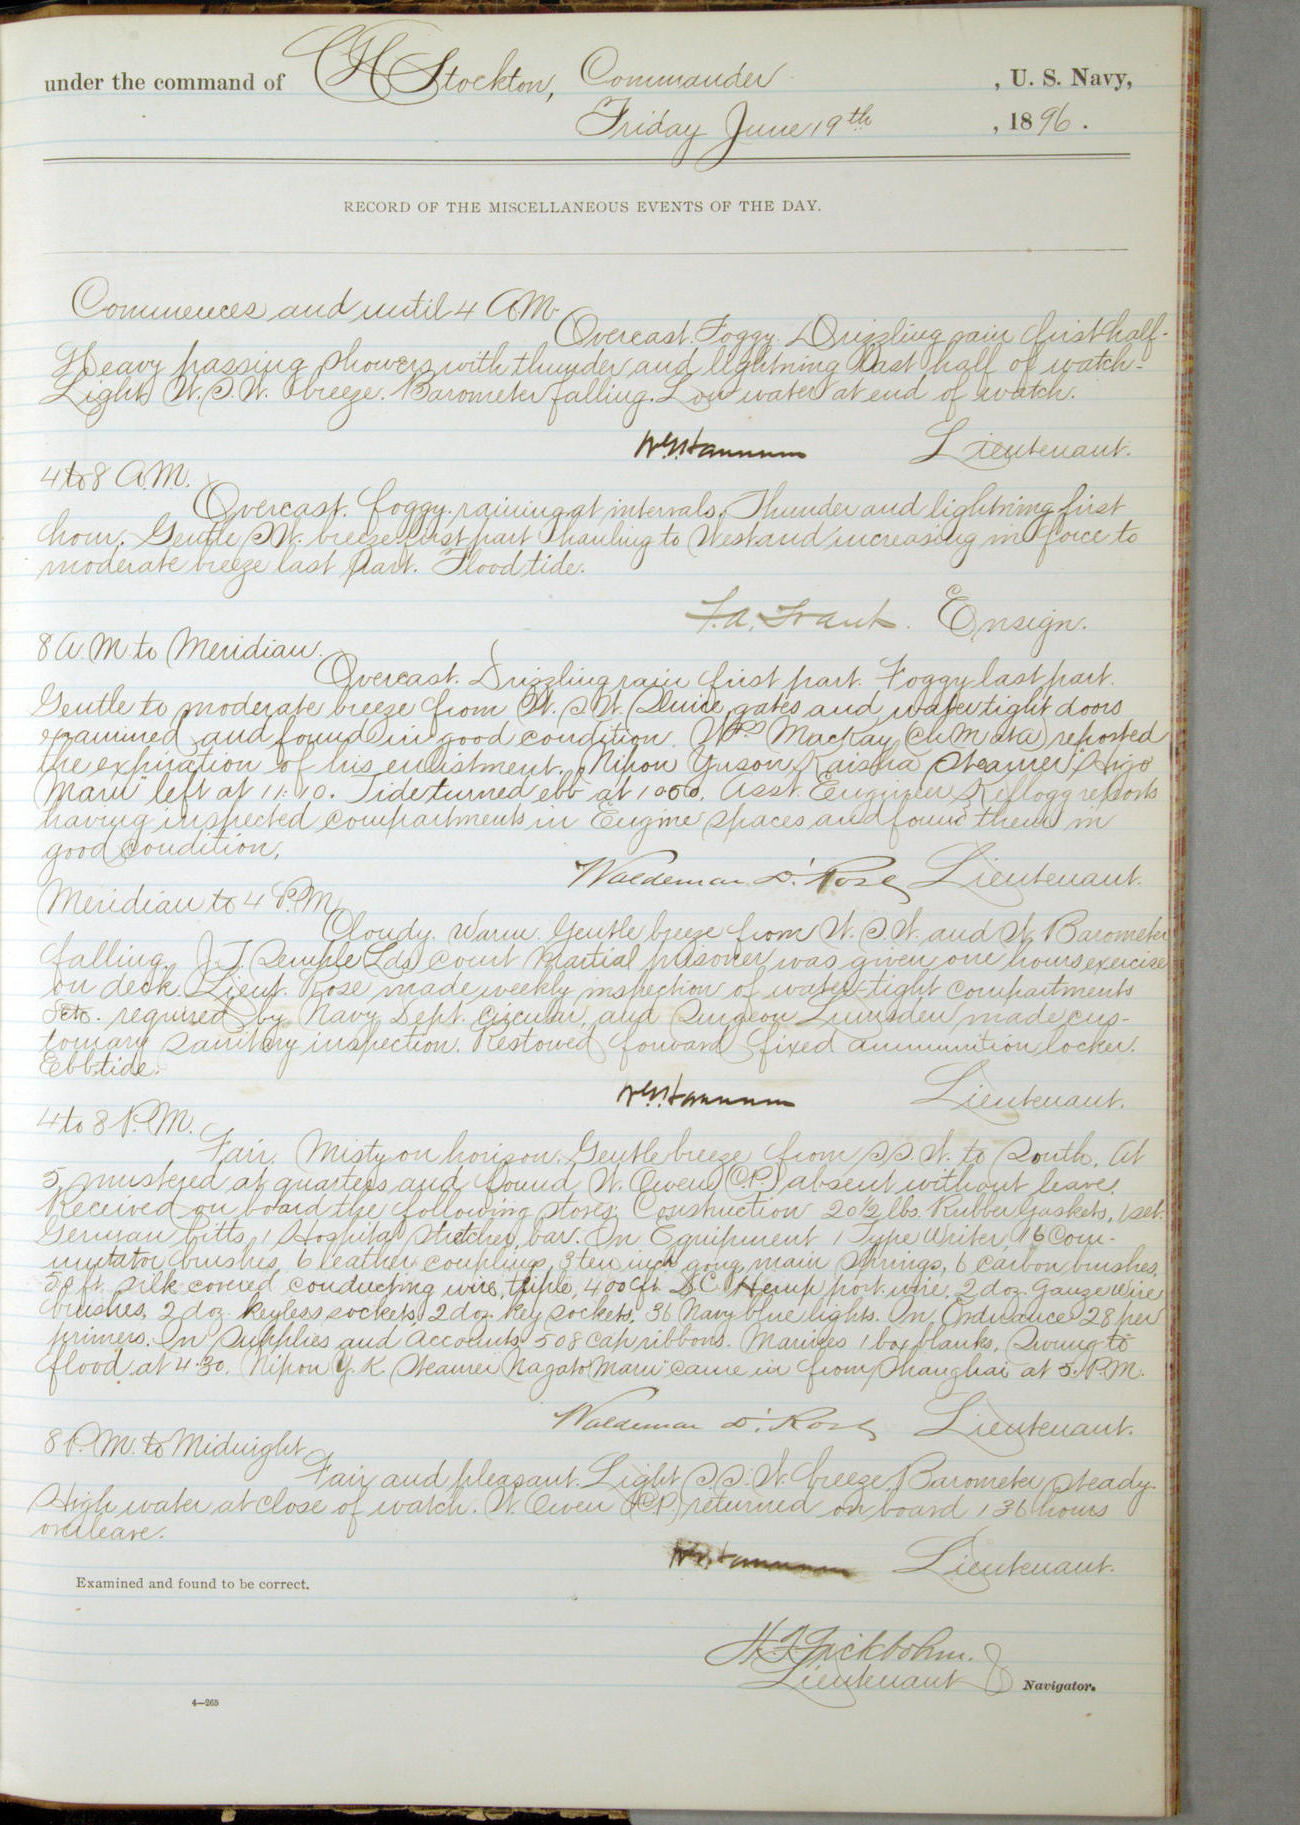 under the command of C H Stockton, Commander , U. S. Navy,
Friday June 19th , 1896.
RECORD OF THE MISCELLANEOUS EVENTS OF THE DAY.
Commences and until 4 A.M.
Overcast. Foggy. Drizzling rain first half.
Heavy passing showers with thunder and lightning last half of watch.
Light W.S.W. breeze. Barometer falling. Low water at end of watch.
Lieutenant.
4 to 8 A.M.
Overcast. foggy. raining at intervals. Thunder and lightning first
hour. Gentle SW. breeze first part hauling to West and increasing in force to
moderate breeze last part. Flood tide.
Ensign.
8 A.M. to Meridian.
Overcast. Drizzling rain first part. Foggy last part.
Gentle to moderate breeze from W.S.W. Sluice gates and water tight doors
examined and found in good condition. Wm MacKay (Ch M at a) reported
the expiration of his enlistment. Nipon Yuson Kaisha Steamer "Higo
Maru" left at 11:10. Tide turned ebb at 10.00. Asst. Engineer Kellogg reports
having inspected compartments in Engine spaces and found them in
good condition.
Waldemar D'. Rose Lieutenant.
Meridian to 4 P.M.
Cloudy. Warm. Gentle breeze from W.S.W. and W. Barometer
falling. J. T. Semple Lds. Court Martial prisoner was given one hours exercise
on deck. Lieut. Rose made weekly inspection of water-tight compartments
etc. required by Navy Dept. circular, and Surgeon Lumsden made cus-
tomary sanitary inspection. Restowed forward fixed ammunition locker.
Ebb tide.
Lieutenant.
4 to 8 P.M.
Fair. Misty on horizon. Gentle breeze from S.S.W. to South. At
5 mustered at quarters and found W. Owen (C.P.) absent without leave.
Received on board the following stores. Construction 20 1/2 lbs. Rubber Gaskets, 1 set
German bitts, 1 Hospital Stretcher bar. In Equipment 1 Type Writer, 16 Com-
mutator brushes, 6 leather couplings, 3 ten inch gong main springs, 6 carbon brushes,
50 ft. silk covered conducting wire, triple, 400 ft. D.C. Hemp port. wire, 2 doz. Gauze wire
brushes, 2 doz. Keyless sockets, 2 doz. Key sockets, 36 Navy blue lights. In Ordnance 28 per
primers. In Supplies and Accounts 508 cap ribbons. Marines 1 box blanks. Swung to
flood at 4.30. Nipon Y.K. Steamer "Nagato Maru" came in from Shanghai at 5. P.M.
Waldemar D'. Rose Lieutenant.
8 P.M. to Midnight
Fair and pleasant. Light S.S.W. breeze. Barometer steady.
High water at close of watch. W. Owen (C.P.) returned on board 136 hours
overleave.
Lieutenant.
Examined and found to be correct.
Lieutenant Navigator.
4—265